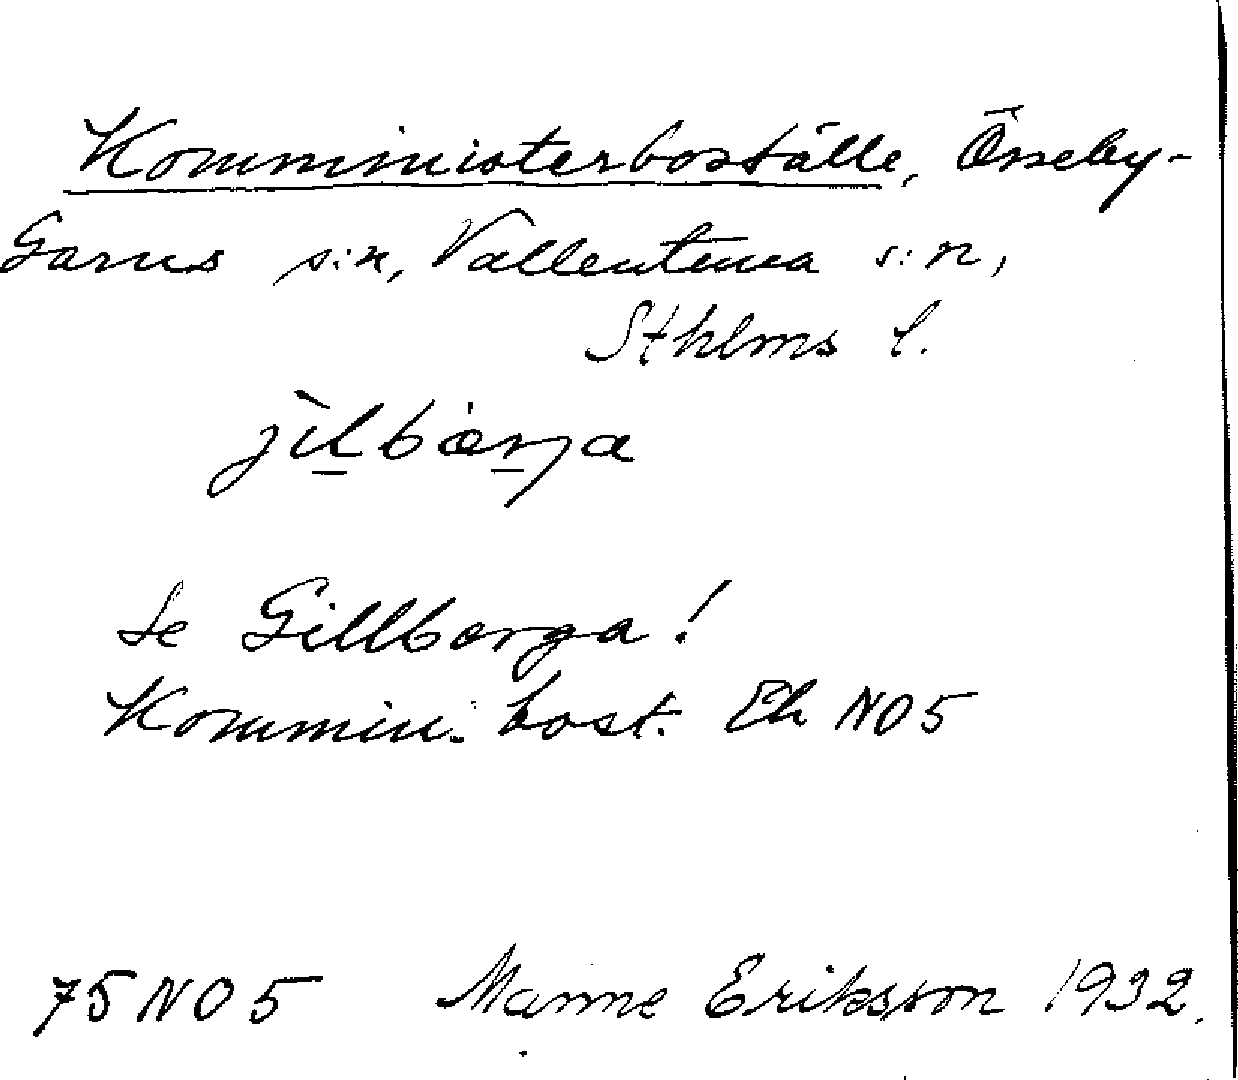 Komministerboställe, Össeby-
Garns s:n, Vallentuna s:n,
Sthlms l.
Se Gillberga!
Kommin. bost. Ek NO5
75 NO 5 Manne Eriksson 1932.